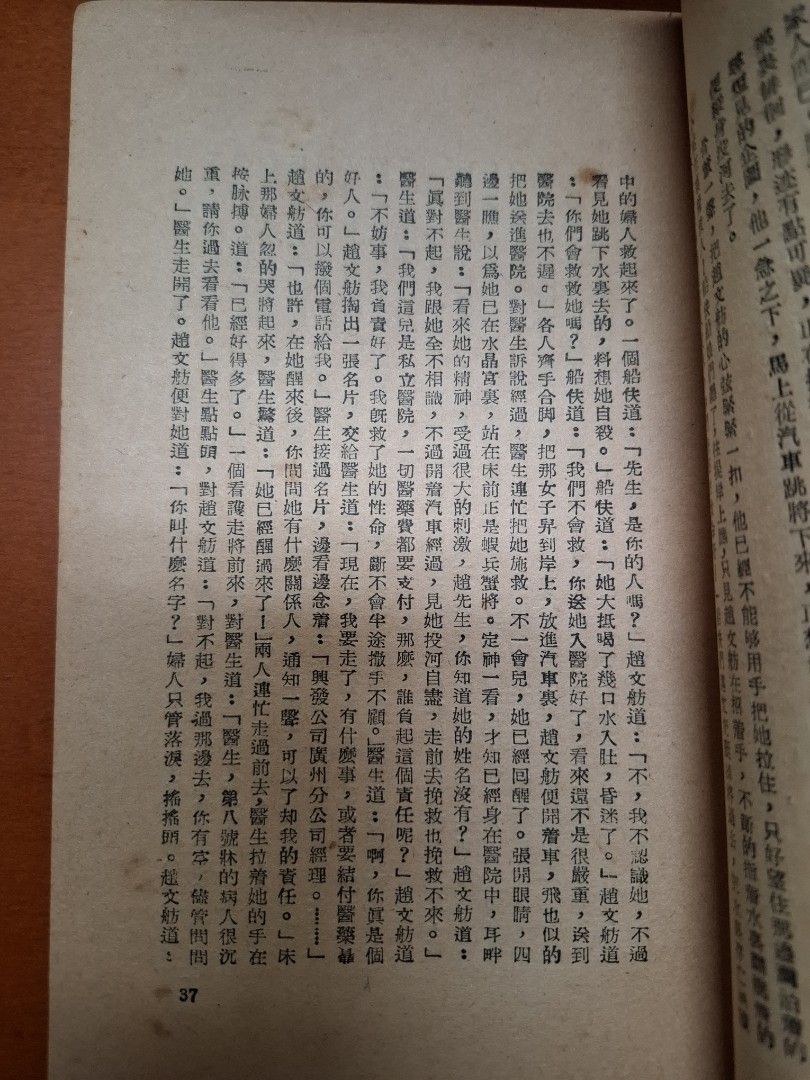 中的婦人救起來了。一個船伕道：「先生，是你的人嗎？」趙文舫道：「不，我不認識她，不過
看見她跳下水裏去的，料想她自殺。」船伕道：「她大抵喝了幾口水入肚，昏迷了。」趙文舫道
：「你們會救救她嗎？」船伕道：「我們不會救，你送她入醫院好了，看來還不是很嚴重，送到
醫院去也不遲。」各人齊手合脚，把那女子昇到岸上，放進汽車裏，趙文舫便開着車，飛也似的
把她送進醫院。對醫生訴說經過，醫生連忙把她施救。不一會兒，她已經回醒了。張開眼睛，四
邊一瞧，以爲她已在水晶宮裏，站在床前正是蝦兵蟹將。定神一看，才知已經身在醫院中，耳畔
聽到醫生說：「看來她的精神，受過很大的刺激，趙先生，你知道她的姓名沒有？」趙文舫道：
「眞對不起，我跟她全不相識，不過開着汽車經過，見她投河自盡，走前去挽救也挽救不來。」
醫生道：「我們這兒是私立醫院，一切醫藥費都要支付，那麼，誰負起這個責任呢？」趙文舫道
：「不妨事，我負責好了。我旣救了她的性命，斷不會半途撒手不顧。」醫生道：「啊，你眞是個
好人。」趙文舫掏出一張名片，交給醫生道：「現在，我要走了，有什麼事，或者要結付醫藥
的，你可以撥個電話給我。」醫生接過名片，邊看邊念着：「興發公司廣州分公司經理。……」
趙文舫道：「也許，在她醒來後，你問問她有什麼關係人，通知一聲，可以了却我的責任。」床
上那婦人忽的哭將起來，醫生驚道：「她已經醒過來了！」兩人連忙走過前去，醫生拉着她的手在
按脉搏。道：「已經好得多了。」一個看護走將前來，對醫生道：「醫生，第八號牀的病人很沉
重，請你過去看看他。」醫生點點頭，對趙文舫道：「對不起，我過那邊去，你有空，儘管問問
她。」醫生走開了。趙文舫便對她道：「你叫什麼名字？」婦人只管落淚，搖搖頭。趙文舫道：
37
他一急之下，馬上從汽車跳將下來
把趙文舫的心弦緊緊一扣，他已經不能够用手把她拉住，只好望住